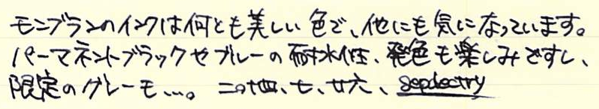 モンブランのインクは何とも美しい色で、他にも気になっています。
パーマネントブラックやブルーの耐水性、発色も楽しみですし、
限定のグレーも…。二〇十四、七、廿六、